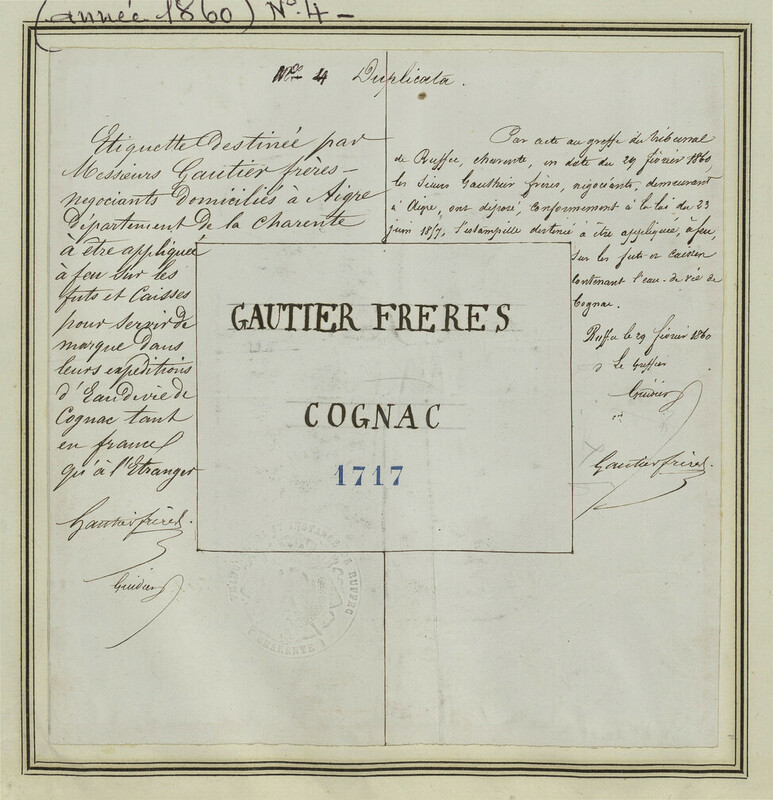 (année 1860) No. 4 -
No. 4 Duplicata.
Etiquette destinée par
Messieurs Gautier frères -
négociants Domiciliés à Aigre
Département de la Charente
à être appliquée
à feu sur les
futs et Caisses
pour servir de
marque dans
leurs expéditions
d'Eau de vie de
Cognac tant
en france
qu'à l'Etranger
Gautier frères
Par acte au greffe du tribunal
de Ruffec, charente, en date du 29 février 1860,
les Sieurs Gauthier frères, négociants, demeurant
à Aigre, ont déposé, conformément à la loi du 23
juin 1857, l'estampille destinée à être appliquée, à feu,
sur les futs et caisses
contenant l'eau-de-vie de
Cognac.
Ruffec le 29 février 1860
Le Greffier
Gautier frères.
GAUTIER FRERES
COGNAC
1717
RUFFEC
CHARENTE